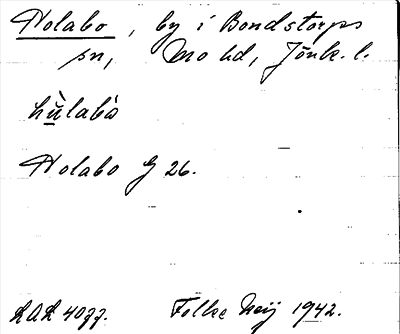 Holabo, by i Bondstorps
sn, Mo hd, Jönk. l.
hu̲̇labò
Holabo G 26.
LAL 4077. Folke Meij 1942.